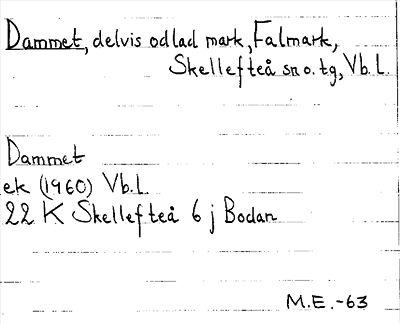 Dammet, delvis odlad mark, Falmark,
Skellefteå sn o. tg, Vb. L.
Dammet
ek (1960) Vb. L.
22 K Skellefteå 6 j Bodan
M.E. -63